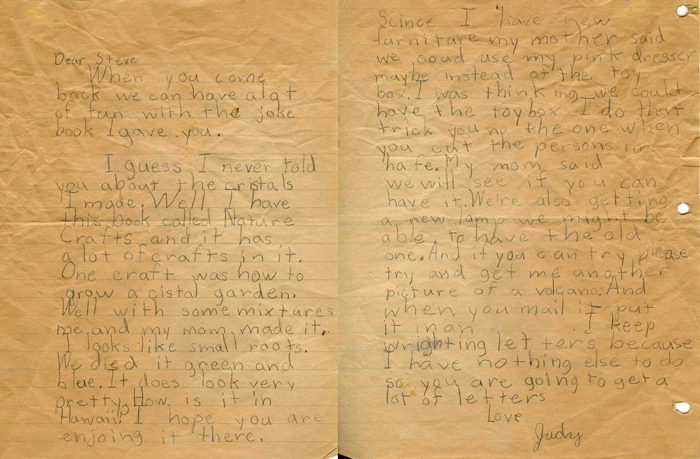 Dear Steve
When you come
back we can have alot
of fun with the joke
book I gave you.
I guess I never told
you about the cristals
I made. Well, I have
this book called Nature
Crafts and it has
a lot of crafts in it.
One craft was how to
grow a cistal garden.
Well with some mixtures
me and my mom made it.
I looks like small roots.
We died it green and
blue. It does look very
pretty. How is it in
Hawaii? I hope you are
enjoing it there.
Scince I have new
furniture my mother said
we coud use my pink dresser
maybe instead of the toy
box. I was thinking we could
have the toybox I do that
trick you no the one when
you cut the persons in
hafe. My mom said
we will see if you can
have it. We're also getting
a new lamp we might be
able to have the old
one. And if you can try please
try and get me another
picture of a volcano. And
when you mail it put
it in an I keep
wrighting letters because
I have nothing else to do
so you are going to get a
lot of letters
Love
Judy